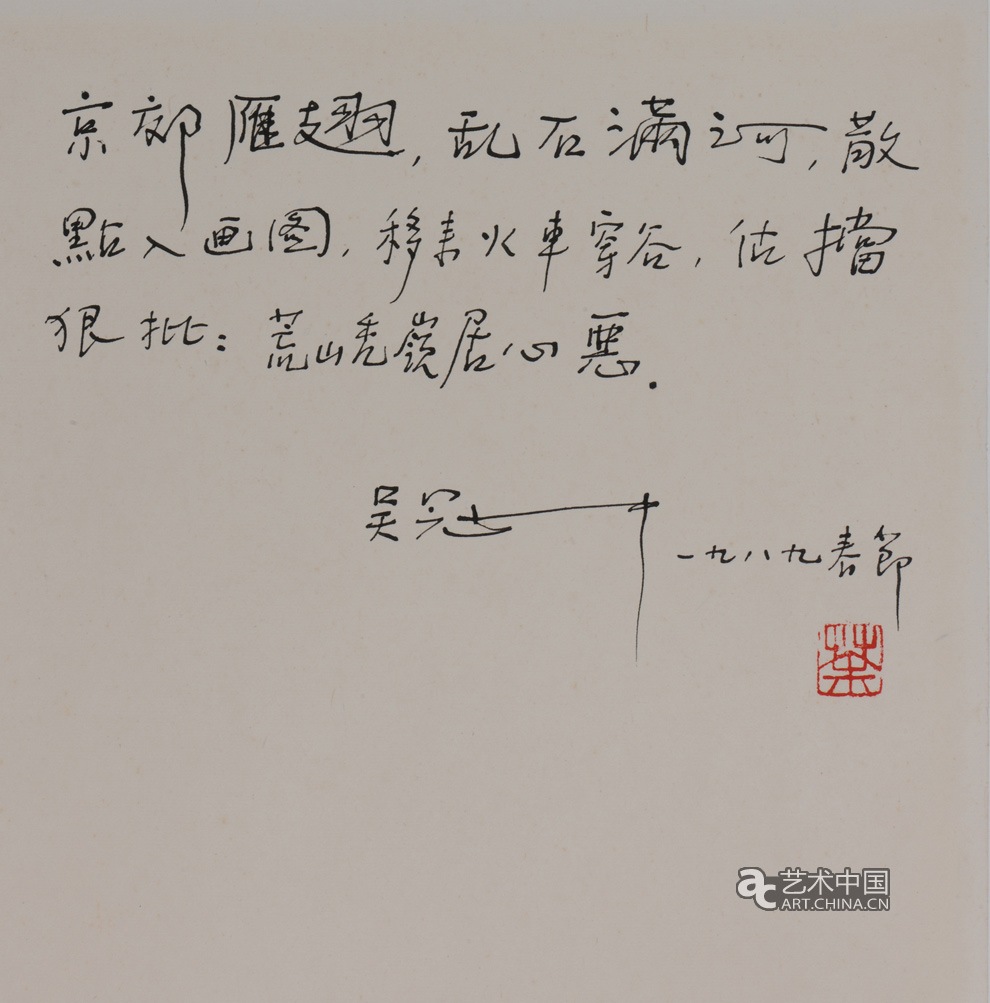 京郊雁翅，乱石满河，散
點入画图，移来火車穿谷，估擋
狠批：荒山秃嶺居心惡.
吴冠中 一九八九春節
荼
ac 艺术中国
ART.CHINA.CN